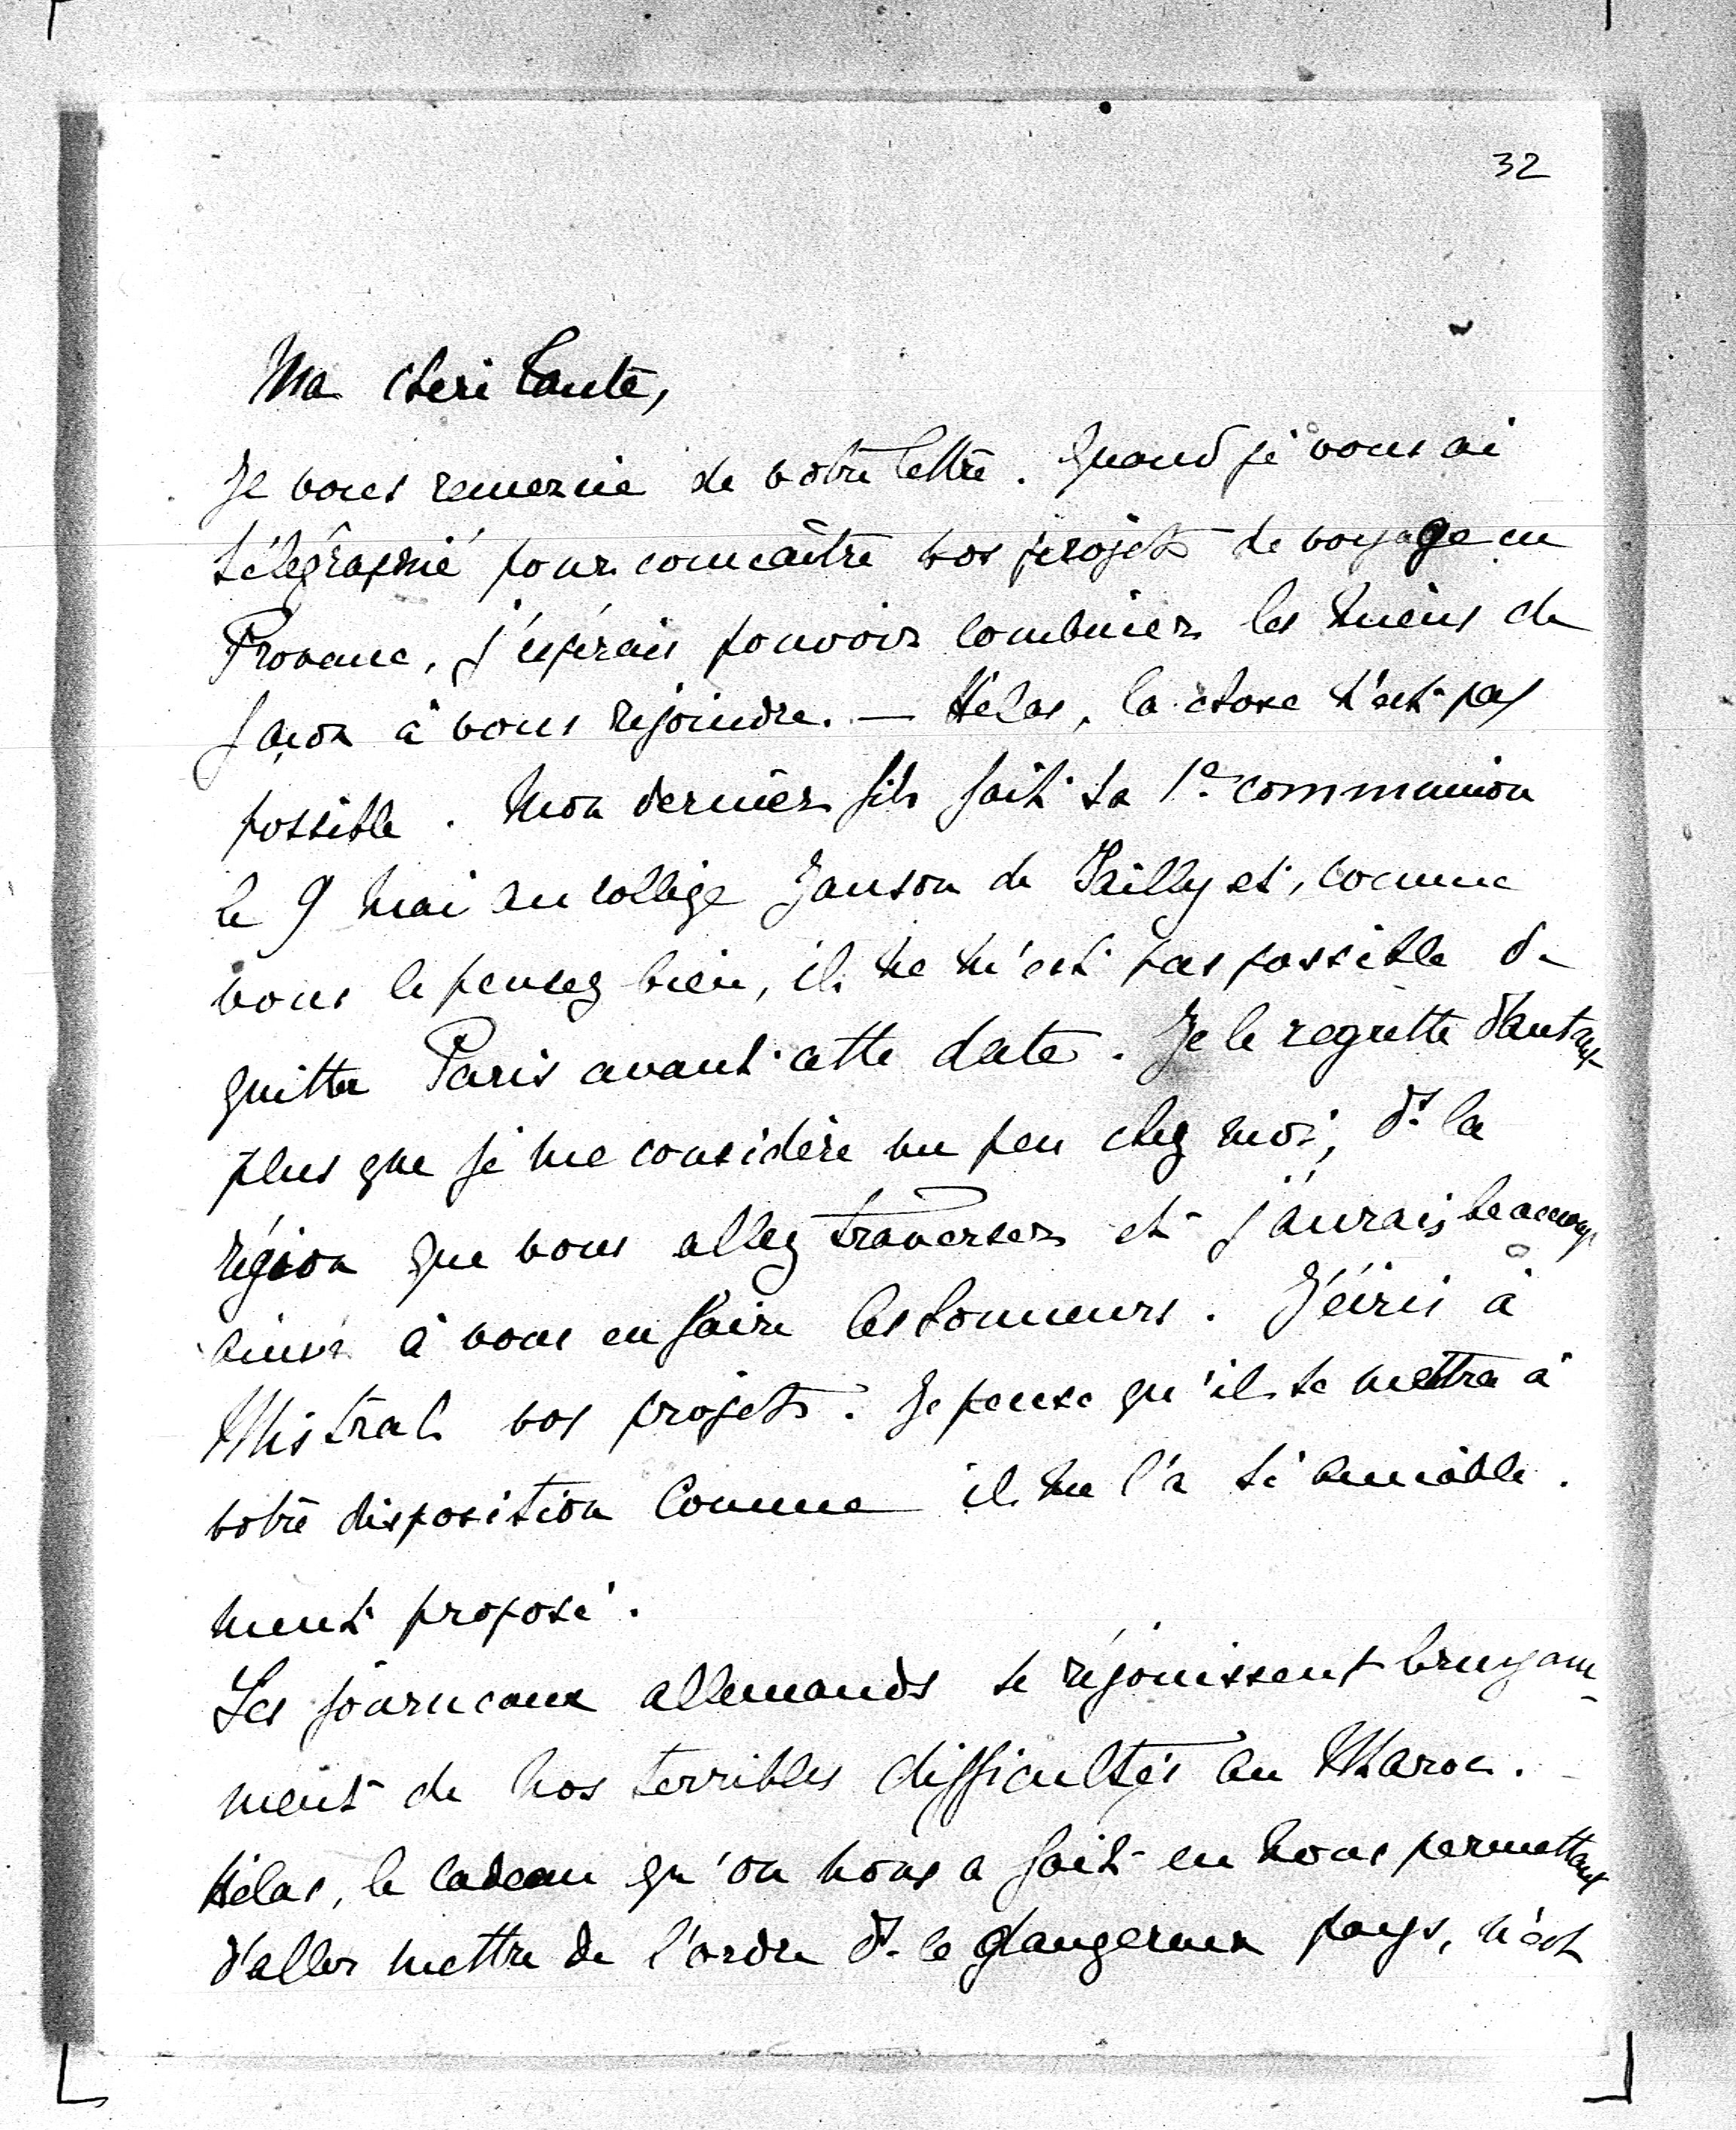 32
Ma chère tante,
Je vous remercie de votre lettre. Quand je vous ai
télégraphié pour connaître vos projets de voyage en
Provence, j'espérais pouvoir combiner les miens de
façon à vous rejoindre. — Hélas, la chose n'est pas
possible. Mon dernier fils fait sa 1e communion
le 9 mai au collège Janson de Sailly et, comme
vous le pensez bien, il ne m'est pas possible de
quitter Paris avant cette date. Je le regrette d'autant
plus que je me considère un peu chez moi, ds la
région que vous allez traverser et j'aurais beaucoup
aimé à vous en faire les honneurs. J'écris à
Mistral vos projets. Je pense qu'il se mettra à
votre disposition comme il me l'a si aimable-
ment proposé.
Les journaux allemands se réjouissent bruyam-
ment de nos terribles difficultés au Maroc.
Hélas, le cadeau qu'on nous a fait en nous permettant
d'aller mettre de l'ordre ds ce dangereux pays, n'est